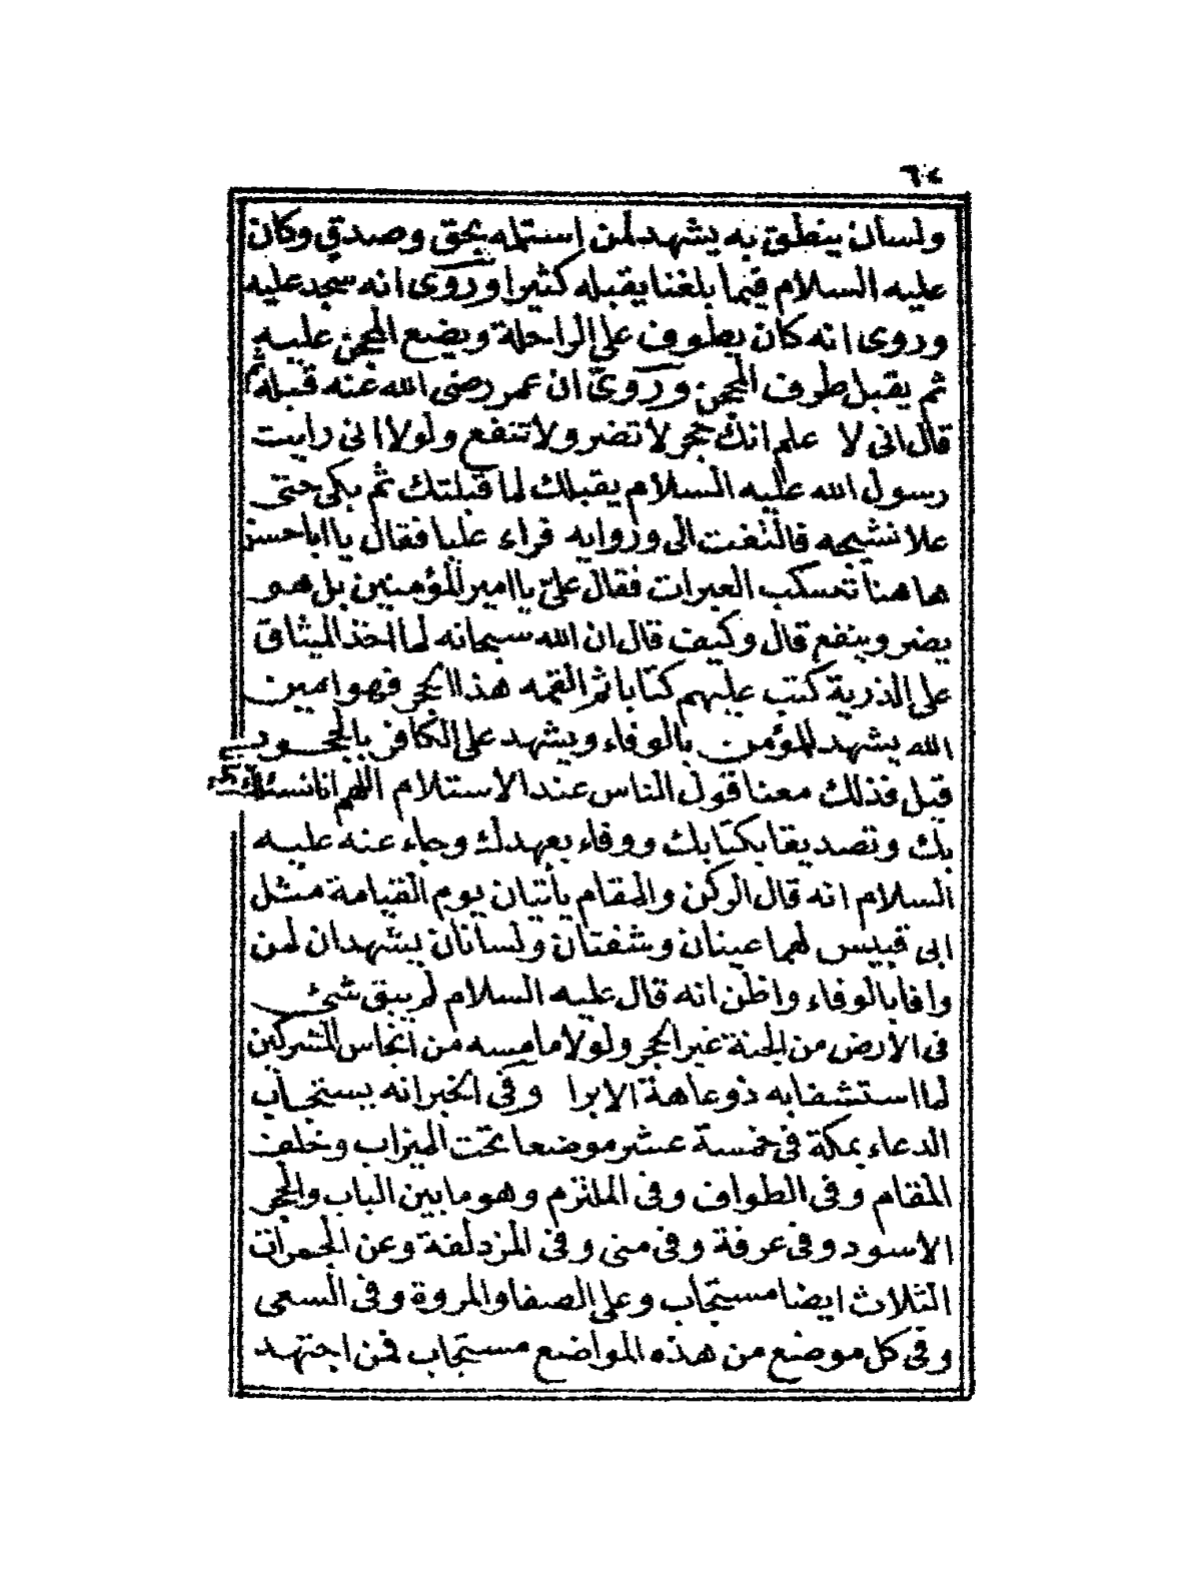 ٦٤
ولسان ينطق به يشهد لمن استلمه بحق وصدق وكان
عليه السلام فيما بلغنا يقبله كثيرا وروى انه سجد عليه
وروى انه كان يطوف على الراحلة ويضع المحجن عليه
ثم يقبل طرف المحجن وروى ان عمر رضى الله عنه قبله ثم
قال انى لا علم انك حجر لا تضر ولا تنفع ولولا انى رايت
رسول الله عليه السلام يقبلك لما قبلتك ثم بكى حتى
علا نشيجه فالتفت الى وروايه فراء عليا فقال يا ابا حسن
هاهنا تنسكب العبرات فقال على يا امير المؤمنين بل هو
يضر وينفع قال وكيف قال ان الله سبحانه لما اخذ الميثاق
على الذرية كتب عليهم كتابا ثم القمه هذا الحجر فهو امين
الله يشهد للمؤمن بالوفاء ويشهد على الكافر بالجحود
قيل فذلك معنا قول الناس عند الاستلام اللهم انا نسئلك
بك وتصديقا بكتابك ووفاء بعهدك وجاء عنه عليه
السلام انه قال الركن والمقام يأتيان يوم القيامة مثل
ابى قبيس لهما عينان وشفتان ولسانان يشهدان لمن
وافا بالوفاء واظن انه قال عليه السلام لم يبق شئ
فى الأرض من الجنة غير الحجر ولولا ما مسه من انجاس المشركين
لما استشفا به ذو عاهة الا برا وفى الخبر انه يستجاب
الدعاء بمكة فى خمسة عشر موضعا تحت الميزاب وخلف
المقام وفى الطواف وفى الملتزم وهو ما بين الباب والحجر
الاسود وفى عرفة وفى منى وفى المزدلفة وعن الجمرات
الثلاث ايضا مستجاب وعلى الصفا والمروة وفى السعى
وفى كل موضع من هذه المواضع مستجاب فمن اجتهد